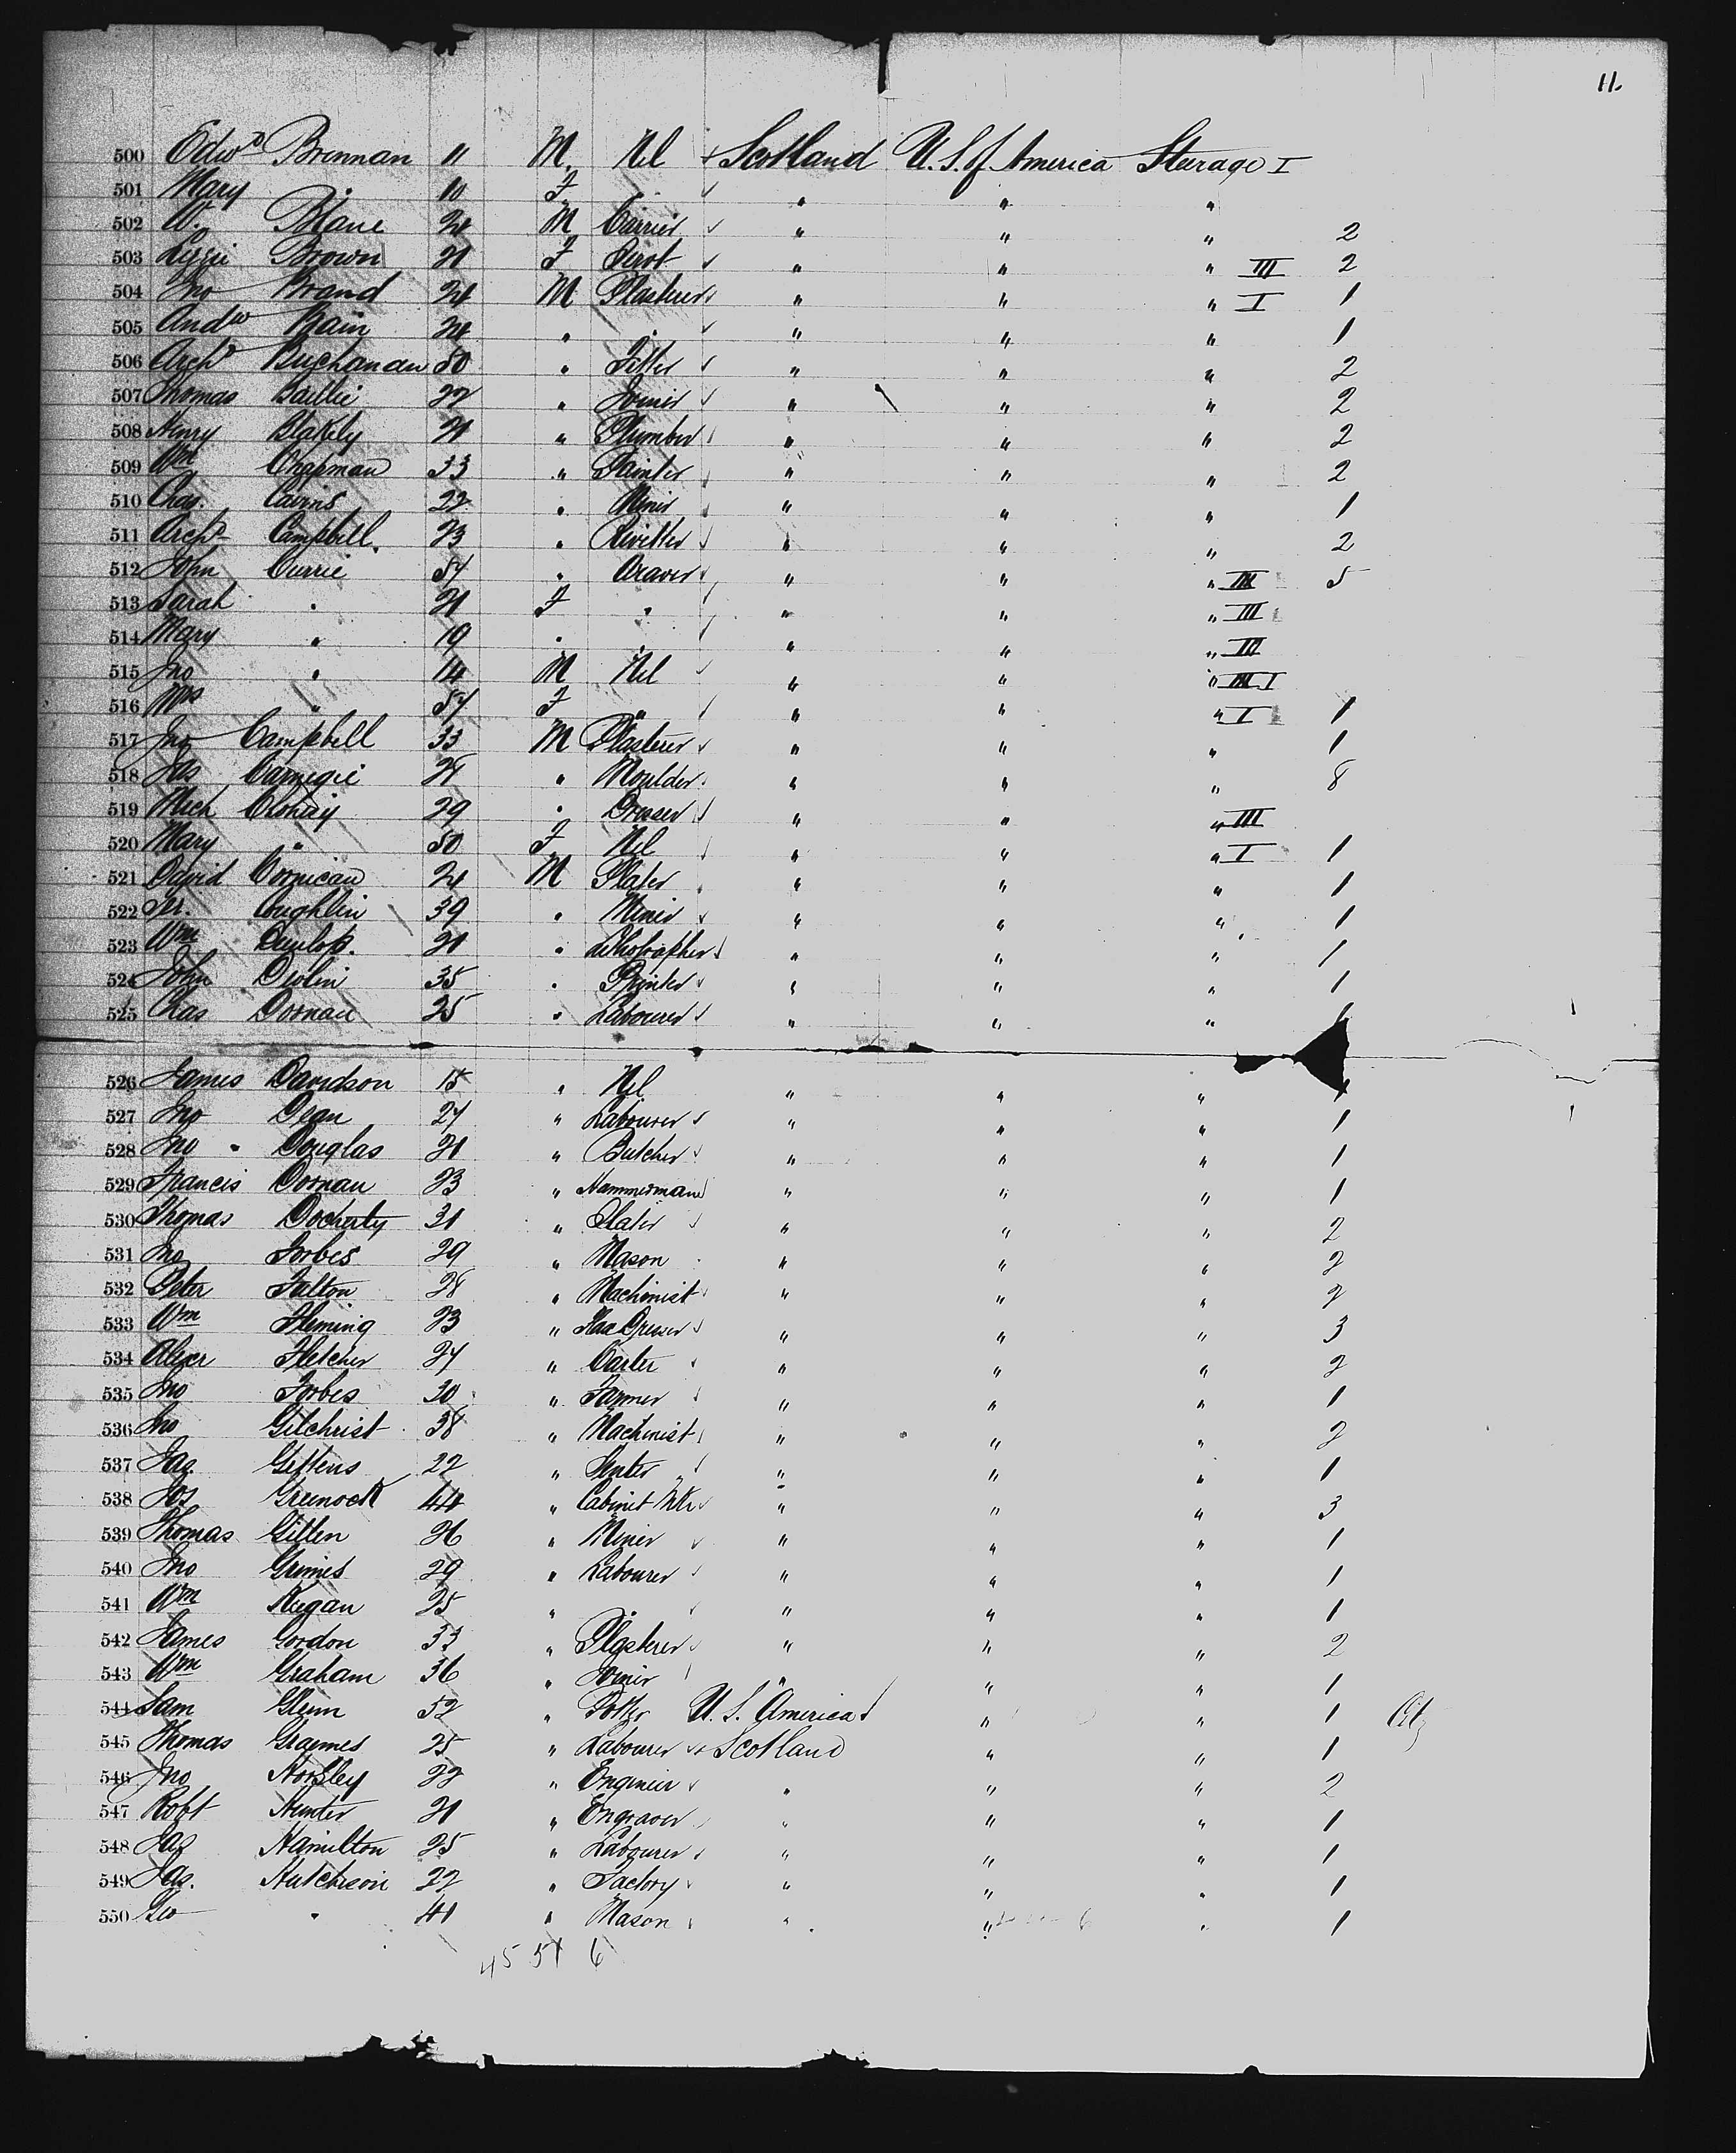 11.
500 Edwd Brennan 11 M. Nil Scotland U.S. of America Steerage I
501 Mary " 10 F " " " "
502 W. Blane 24 M Carrier " " " 2
503 Lizzie Brown 21 F Servt " " " III 2
504 Jno Brand 24 M Plasterer " " " I 1
505 Andw Bain 24 " " " " " 1
506 Archd Buchanan 50 " Fitter " " " 2
507 Thomas Baillie 22 " Joiner " " " 2
508 Henry Blakely 21 " Plumber " " " 2
509 Wm Chapman 33 " Painter " " " 2
510 Chas. Cairns 22 " Miner " " " 1
511 Archd Campbell 23 " Rivetter " " " 2
512 John Currie 57 " " " " III 5
513 Sarah " 21 F " " " " III
514 Mary " 19 " " " " " III
515 Jno " 14 M Nil " " " I
516 Mrs " 57 F " " " " I 1
517 Jno Campbell 33 M Plasterer " " " 1
518 Jas Carnegie 28 " Moulder " " " 8
519 Mich 29 " Dresser " " " III
520 Mary " 50 F Nil " " " I 1
521 David Cornican 24 M Slater " " " 1
522 Coughlin 39 " Miner " " " 1
523 Wm Dunlop. 21 " Lithographer " " " 1
524 John Devlin 35 " Printer " " " 1
525 Chas Dornan 25 " Labourer " " " 1
526 James Davidson 15 " Nil " " " 1
527 Jno Dean 27 " Labourer " " " 1
528 Jno Douglas 21 " Butcher " " " 1
529 Francis Dornan 23 " Hammerman " " " 1
530 Thomas Docherty 31 " Slater " " " 2
531 Jno Forbes 29 " Mason " " " 2
532 Peter Fulton 28 " Machinist " " " 2
533 Wm Fleming 23 " Flax Dresser " " " 3
534 Alexr Fletcher 27 " Carter " " " 2
535 Jno Forbes 30 " Farmer " " " 1
536 Jno Gilchrist 38 " Machinist " " " 2
537 Jas. Gettens 22 " " " " 1
538 Jos Greenock 44 " Cabinet Mkr " " " 3
539 Thomas Gillen 26 " Miner " " " 1
540 Jno Grimes 29 " Labourer " " " 1
541 Wm Keegan 25 " " " " " 1
542 James Gordon 33 " Plasterer " " " 2
543 Wm Graham 36 " Joiner " " " 1
544 Sam Glenn 52 " Potter U.S. America " " 1 Citz
545 Thomas Graemes 25 " Labourer Scotland " " 1
546 Jno Horsley 22 " Engineer " " " 2
547 Robt Hunter 21 " Engraver " " " 1
548 Jas Hamilton 25 " Labourer " " " 1
549 Jas. Hutcheson 22 " Factory " " " 1
550 Geo " 41 " Mason " " " 1
45 51 6